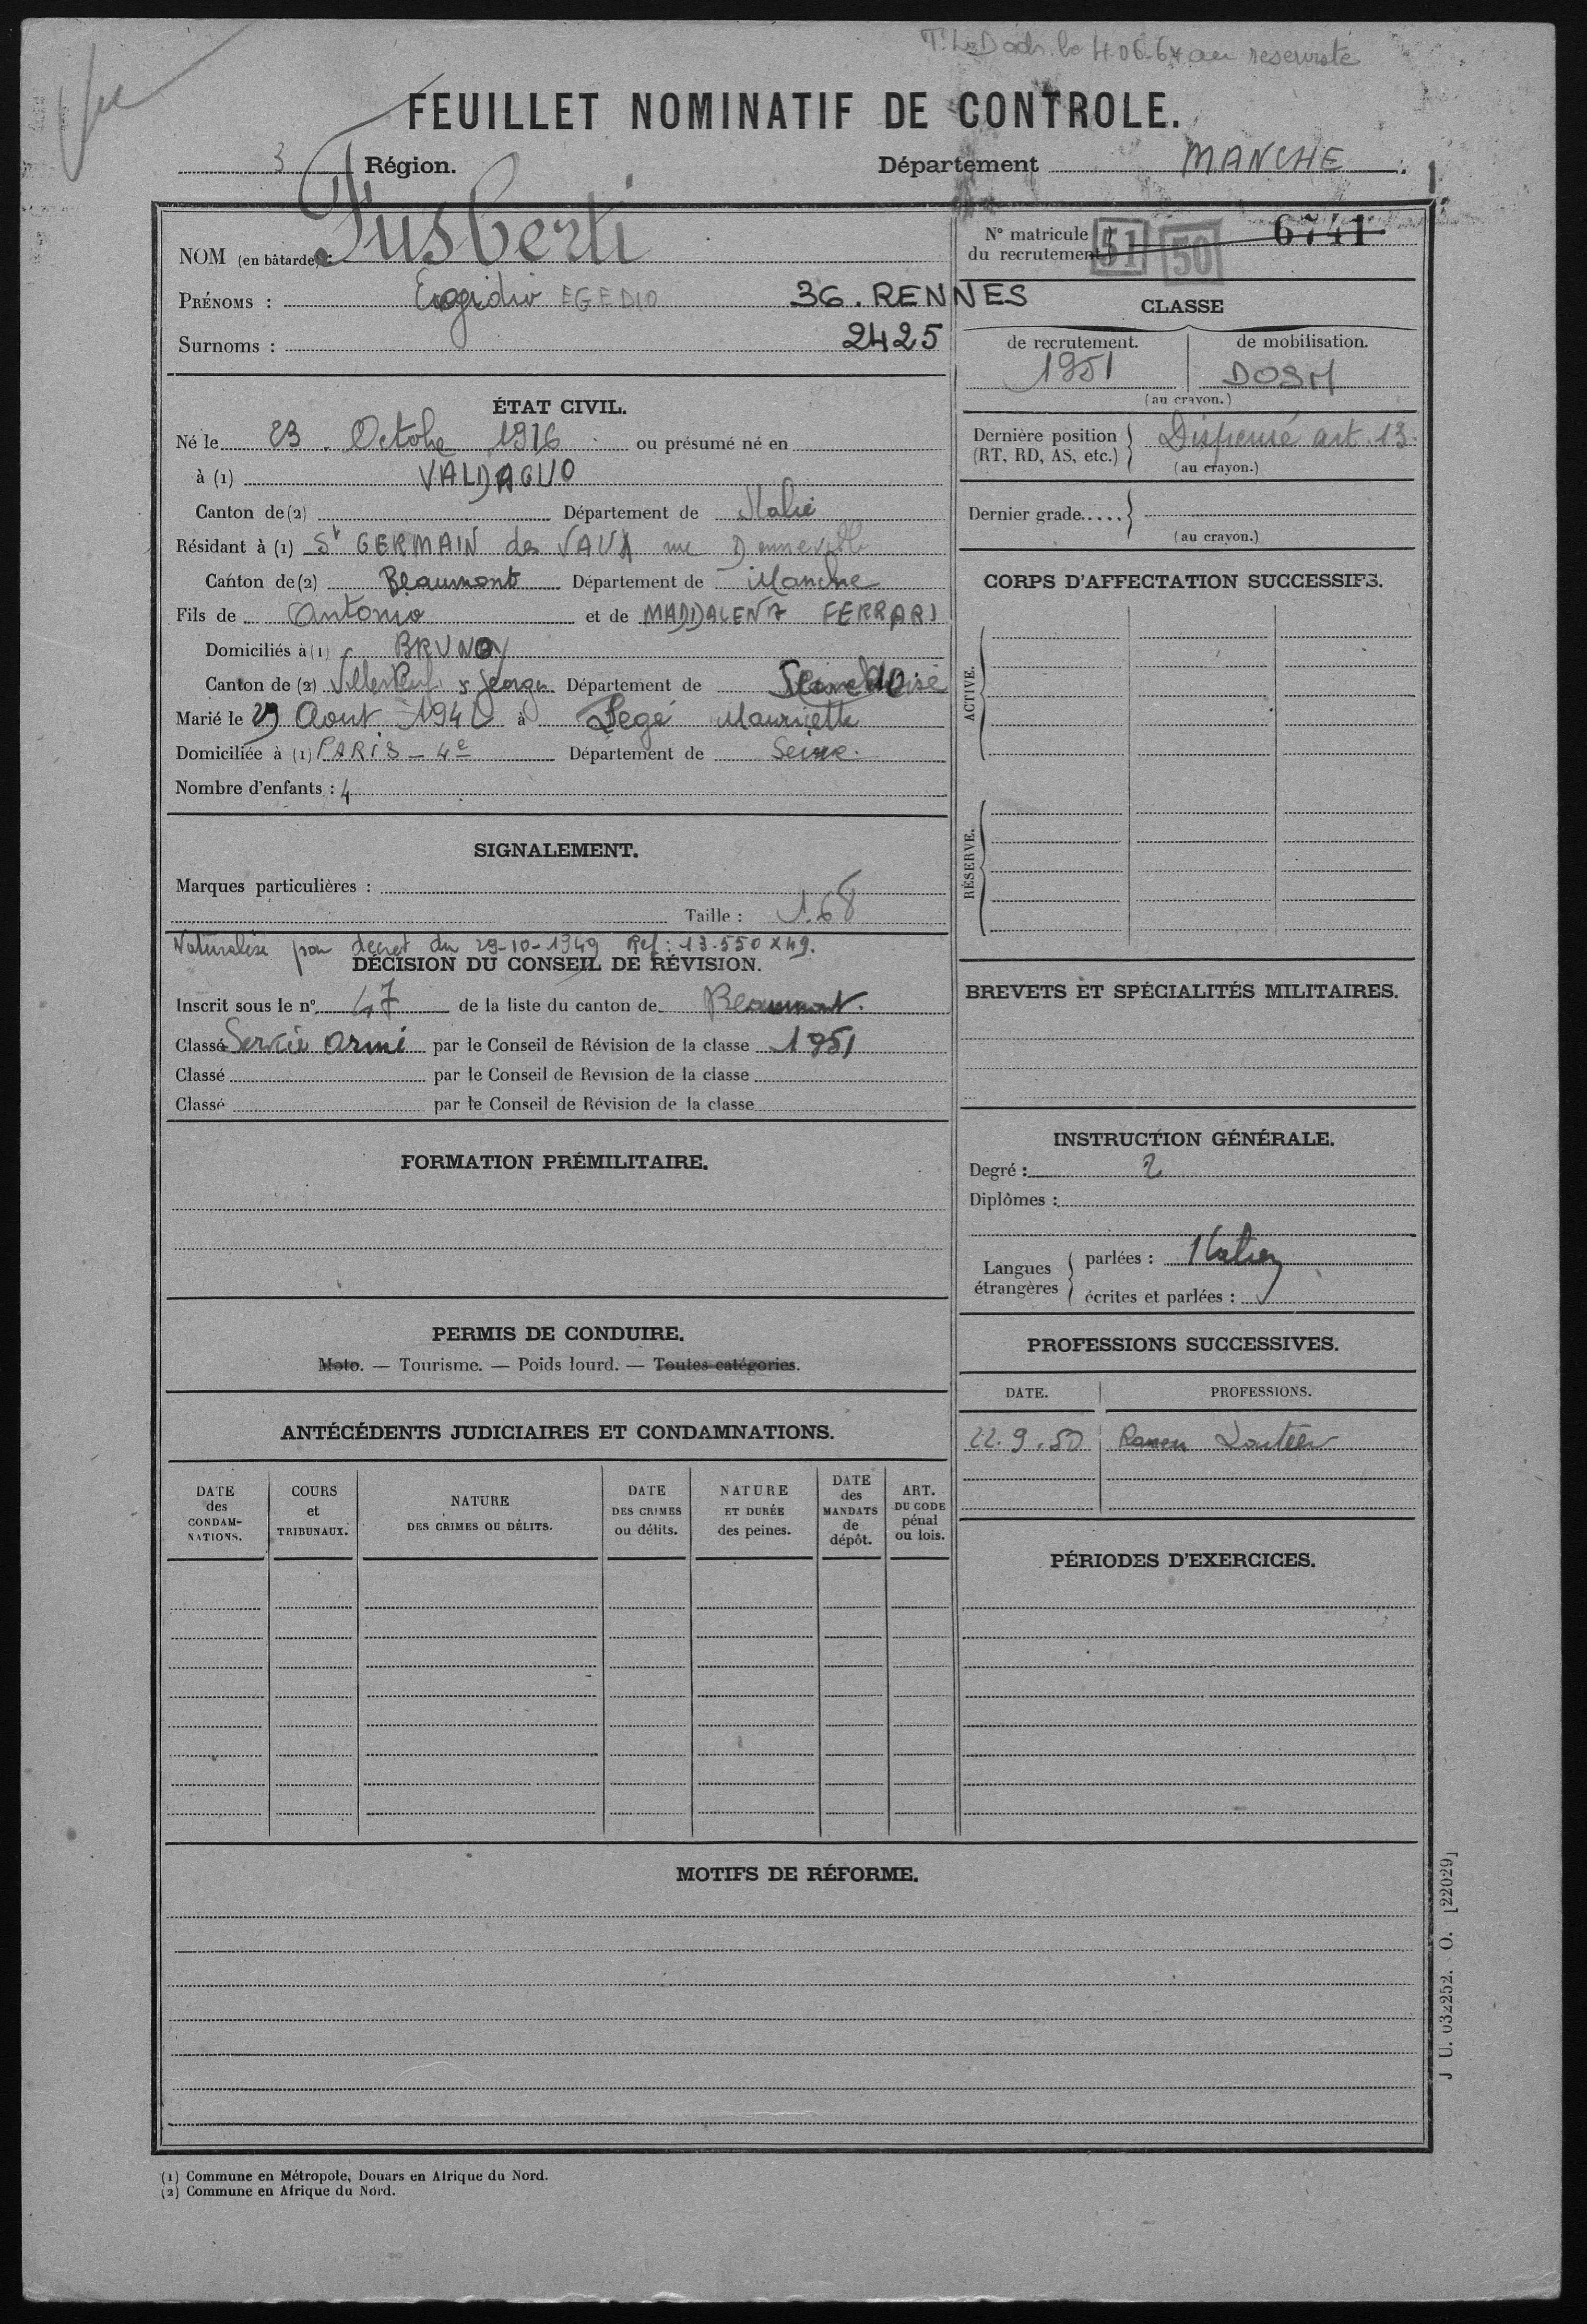 au reserviste
FEUILLET NOMINATIF DE CONTROLE.
3 Région. Département MANCHE.
NOM (en bâtarde) : Fusberti
PRÉNOMS : Egidio EGEDIO 36. RENNES
Surnoms : 2425
ÉTAT CIVIL.
Né le 23 Octobre 1916 ou présumé né en
à (1) VALDAGNO
Canton de (2) Département de Italie
Résidant à (1) St GERMAIN des VAUX
Canton de (2) Beaumont Département de Manche
Fils de Antonio et de MADDALENA FERRARI
Domiciliés à (1) BRUNOY
Canton de (2) Villeneuve St Georges Département de Seine et Oise
Marié le 29 Aout 1942 à Mauricette
Domiciliée à (1) PARIS - 4e Département de Seine.
Nombre d'enfants : 4
SIGNALEMENT.
Marques particulières :
Taille : 1.68
Naturalisé par decret du 29-10-1949 Ref : 13.550 X 49.
DÉCISION DU CONSEIL DE RÉVISION.
Inscrit sous le n° 47 de la liste du canton de Beaumont.
Classé Service armé par le Conseil de Révision de la classe 1951
Classé par le Conseil de Révision de la classe
Classé par le Conseil de Révision de la classe
FORMATION PRÉMILITAIRE.
PERMIS DE CONDUIRE.
Moto. — Tourisme. — Poids lourd. — Toutes catégories.
ANTÉCÉDENTS JUDICIAIRES ET CONDAMNATIONS.
DATE des CONDAMNATIONS.
COURS et TRIBUNAUX.
NATURE DES CRIMES OU DÉLITS.
DATE DES CRIMES ou délits.
NATURE ET DURÉE des peines.
DATE des MANDATS de dépôt.
ART. DU CODE pénal ou lois.
N° matricule du recrutement 51 50 6741
CLASSE
de recrutement. de mobilisation.
1951 DOSM
(au crayon.)
Dernière position (RT, RD, AS, etc.) Dispensé art. 13.
(au crayon.)
Dernier grade.....
(au crayon.)
CORPS D'AFFECTATION SUCCESSIFS.
ACTIVE.
RÉSERVE.
BREVETS ET SPÉCIALITÉS MILITAIRES.
INSTRUCTION GÉNÉRALE.
Degré : 2
Diplômes :
Langues étrangères
parlées : Italien
écrites et parlées :
PROFESSIONS SUCCESSIVES.
DATE. PROFESSIONS.
22.9.50
PÉRIODES D'EXERCICES.
MOTIFS DE RÉFORME.
(1) Commune en Métropole, Douars en Afrique du Nord.
(2) Commune en Afrique du Nord.
J. U. 032252. O. [22029]